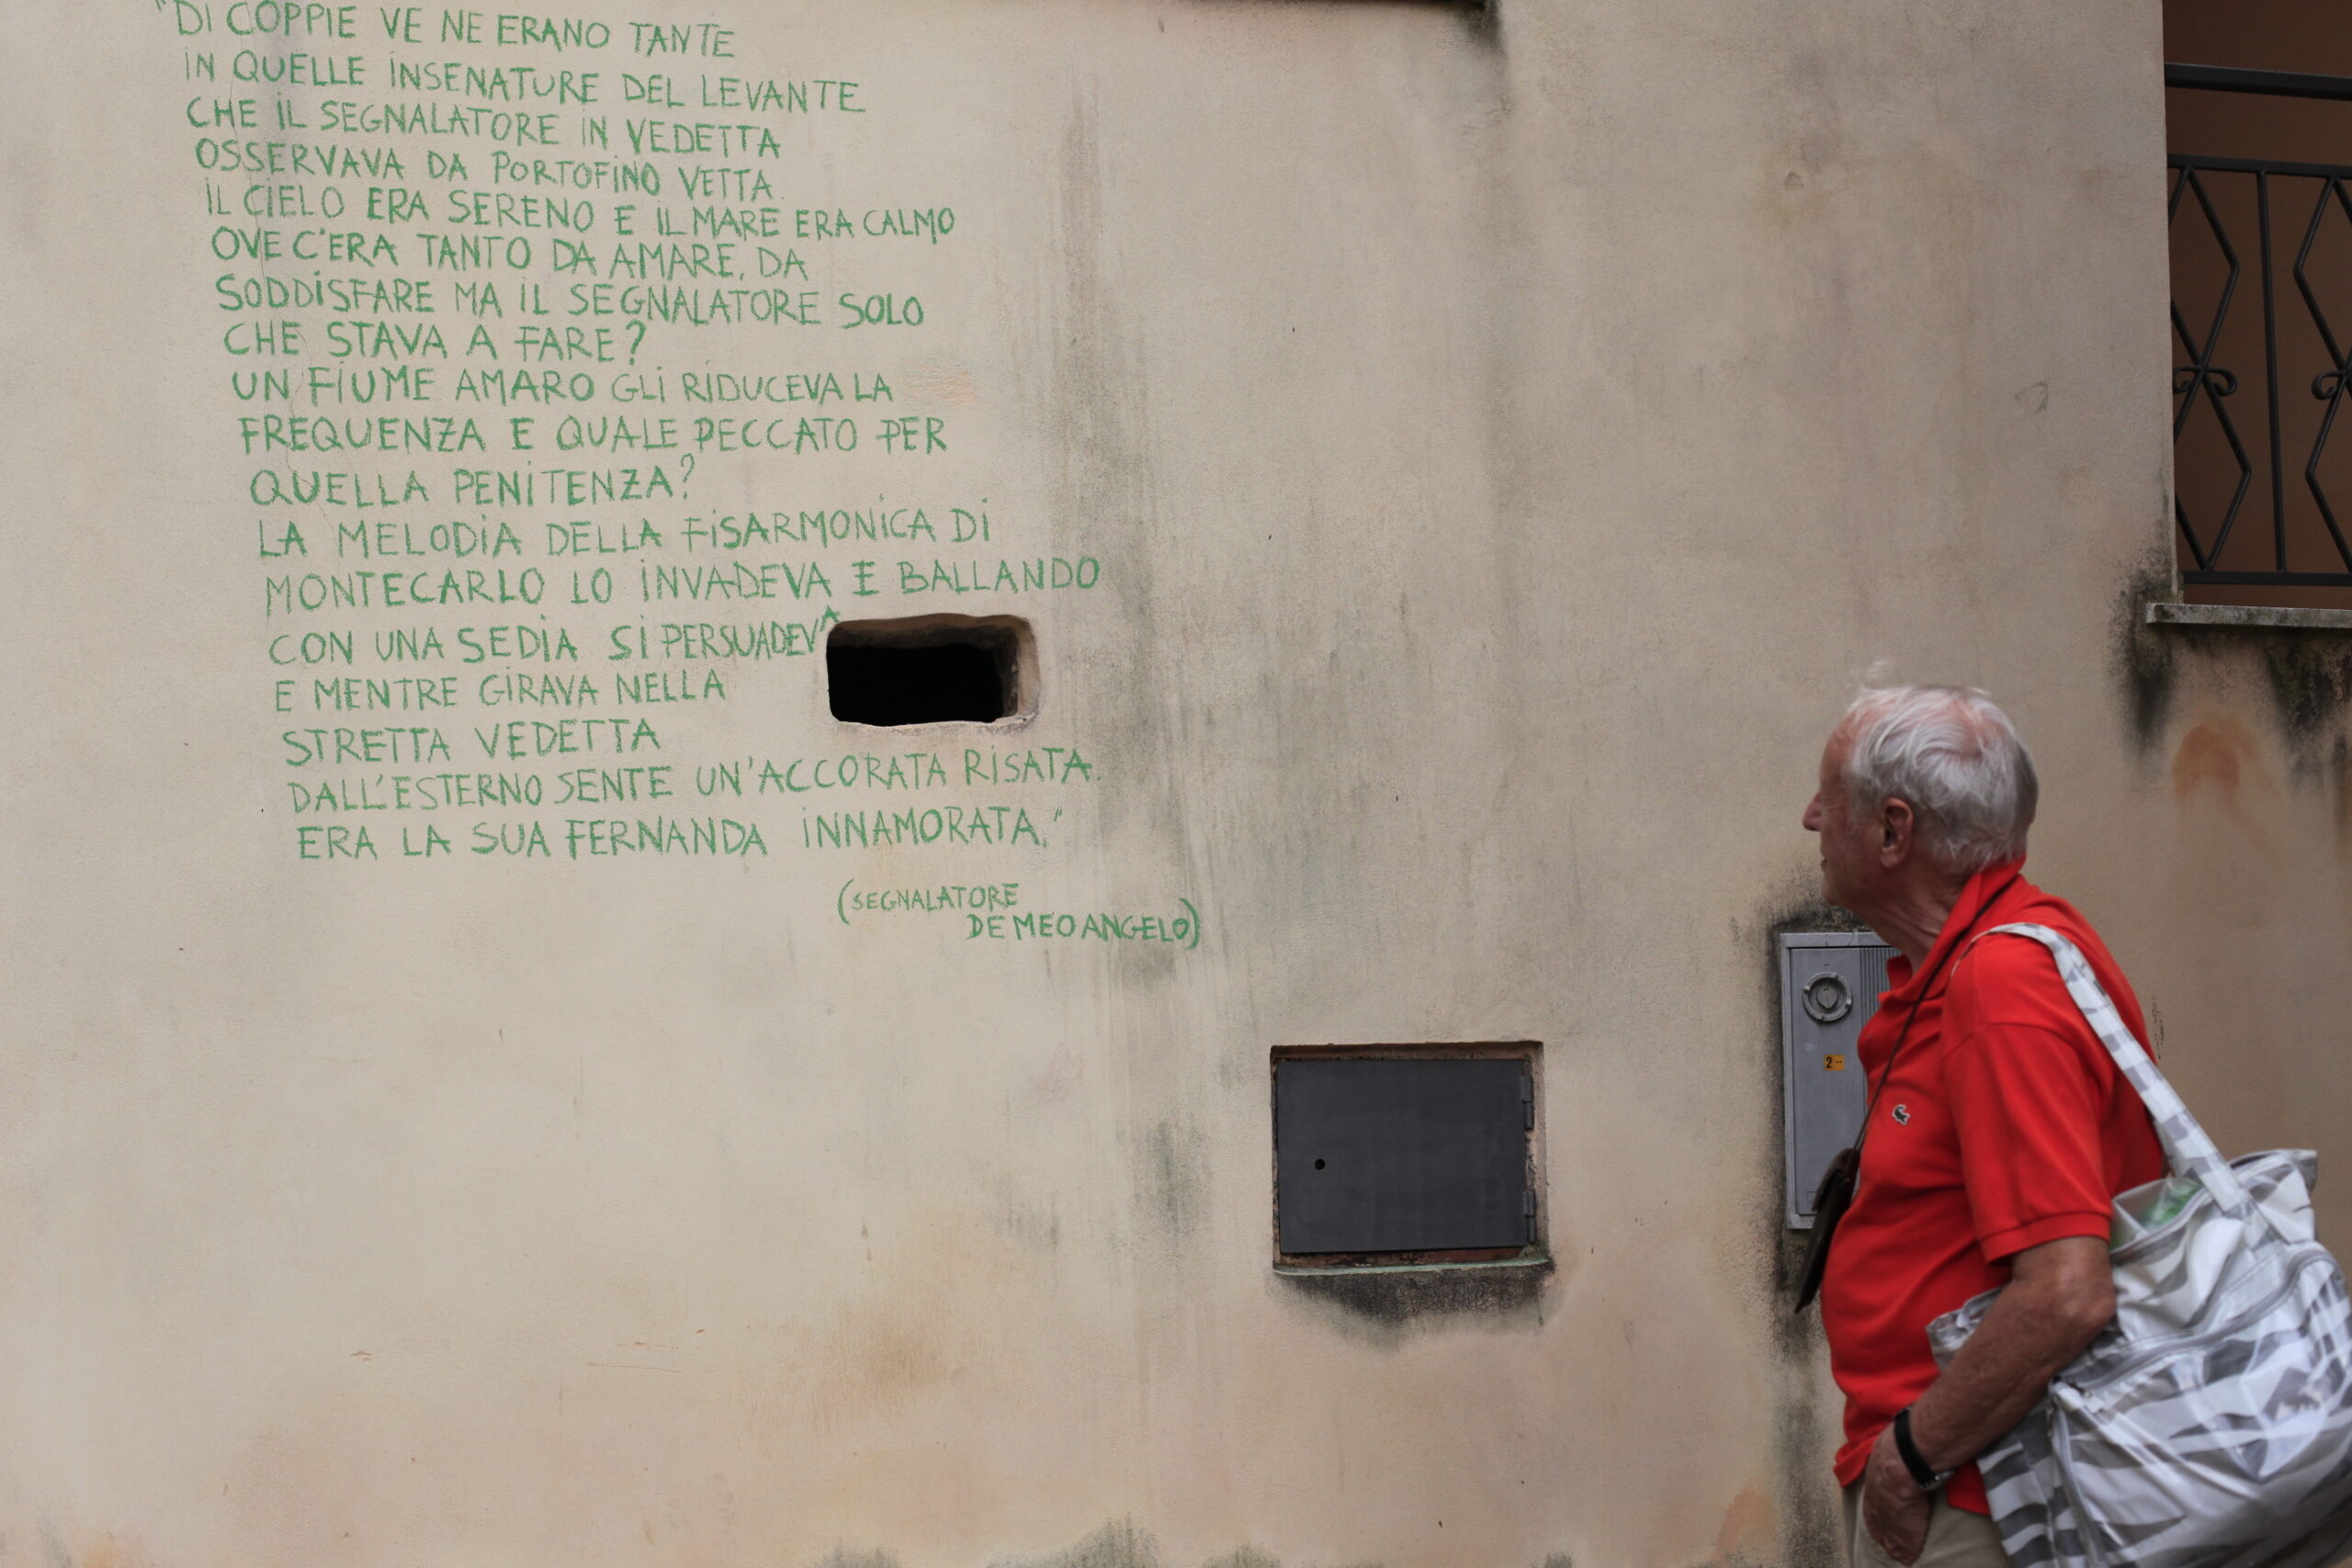 "DI COPPIE VE NE ERANO TANTE
IN QUELLE INSENATURE DEL LEVANTE
CHE IL SEGNALATORE IN VEDETTA
OSSERVAVA DA PORTOFINO VETTA.
IL CIELO ERA SERENO E IL MARE ERA CALMO
OVE C'ERA TANTO DA AMARE, DA
SODDISFARE MA IL SEGNALATORE SOLO
CHE STAVA A FARE?
UN FIUME AMARO GLI RIDUCEVA LA
FREQUENZA E QUALE PECCATO PER
QUELLA PENITENZA?
LA MELODIA DELLA FISARMONICA DI
MONTECARLO LO INVADEVA E BALLANDO
CON UNA SEDIA SI PERSUADEVA
E MENTRE GIRAVA NELLA
STRETTA VEDETTA
DALL'ESTERNO SENTE UN'ACCORATA RISATA.
ERA LA SUA FERNANDA INNAMORATA."
(SEGNALATORE
DE MEO ANGELO)
2